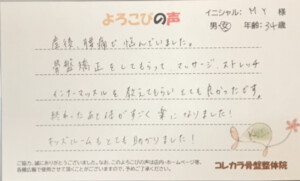 よろこびの声
イニシャル: M Y 様
男・女 年齢: 34 歳
産後、腰痛で悩んでいました。
骨盤矯正をしてもらって マッサージ、ストレッチ
インナーマッスルを教えてもらい とても良かったです。
終わったあと体がすごく楽になりました!
キッズルームもとても助かりました!
ご協力、誠にありがとうございました。なお、このよろこびの声は店内・ホームページ等、
各種広報で使用させて頂くことがございますので、予めご了承ください。
コレカラ骨盤整体院